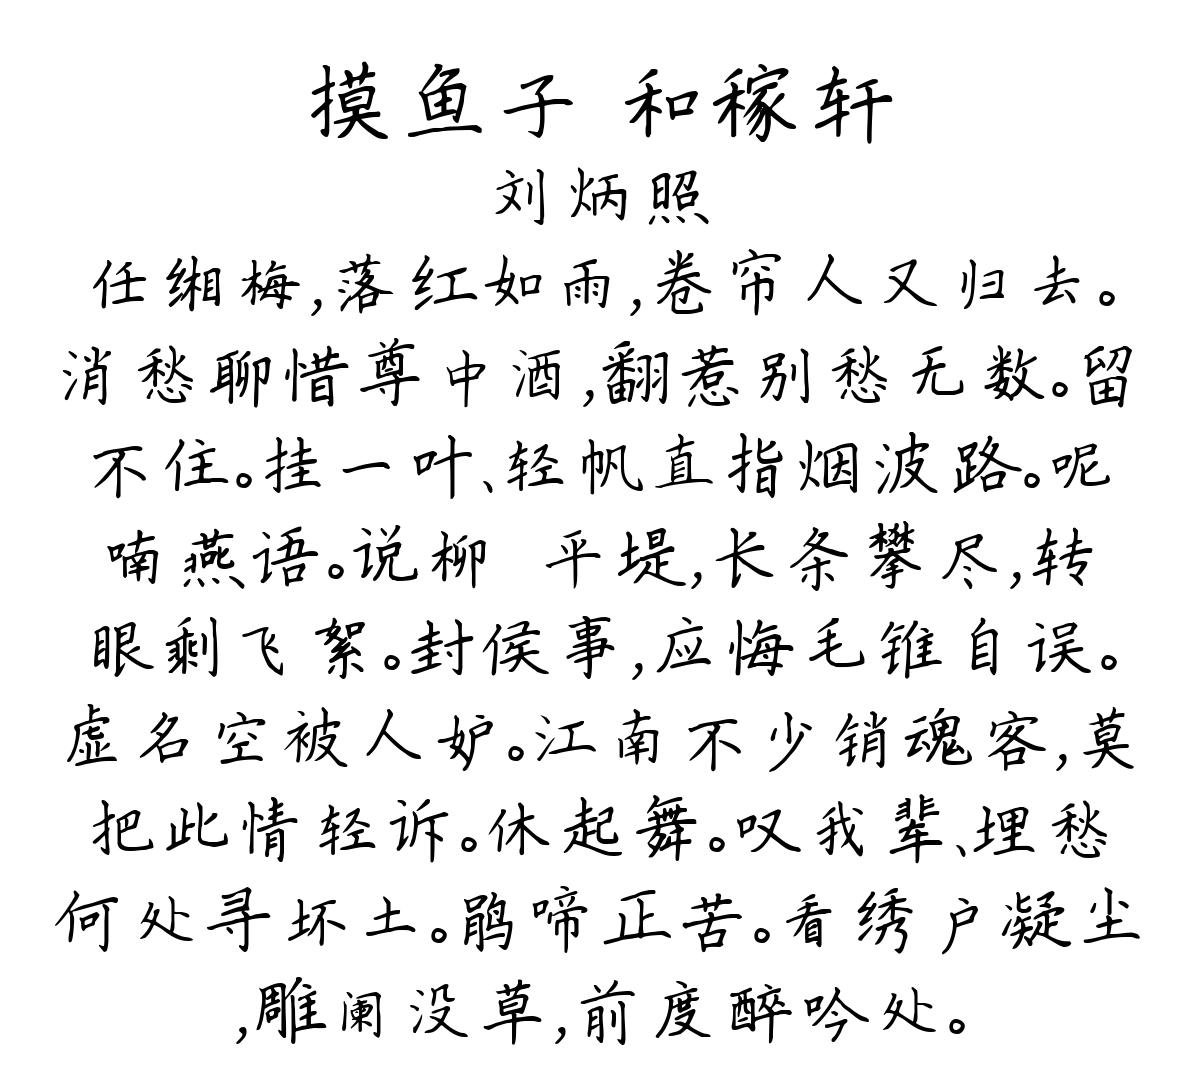 摸鱼子 和稼轩
刘炳照
任缃梅,落红如雨,卷帘人又归去。
消愁聊惜尊中酒,翻惹别愁无数。留
不住。挂一叶、轻帆直指烟波路。呢
喃燕语。说柳 平堤,长条攀尽,转
眼剩飞絮。封侯事,应悔毛锥自误。
虚名空被人妒。江南不少销魂客,莫
把此情轻诉。休起舞。叹我辈、埋愁
何处寻坏土。鹃啼正苦。看绣户凝尘
,雕阑没草,前度醉吟处。